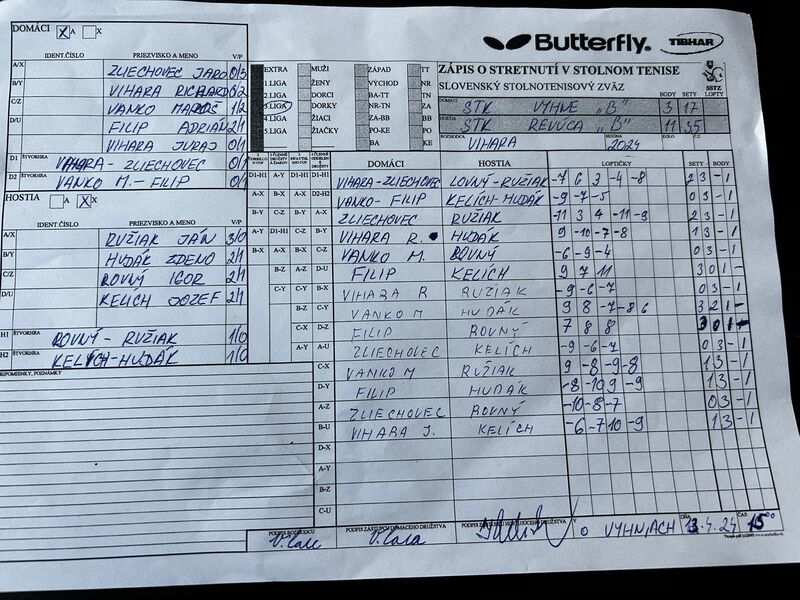 DOMÁCI X A X
IDENT.ČÍSLO PRIEZVISKO A MENO V/P
A/X ZLIECHOVEC JARO 0/3
B/Y VIHARA RICHARD 0/2
C/Z VANKO MAROŠ 1/2
D/U FILIP ADRIAN 2/1
VIHARA JURAJ 0/1
D1 ŠTVORHRA VIHARA - ZLIECHOVEC 0/1
D2 VANKO M. - FILIP 0/1
HOSTIA A X X
IDENT.ČÍSLO PRIEZVISKO A MENO V/P
A/X RUŽIAK JÁN 3/0
B/Y HUDÁK ZDENO 2/1
C/Z ROVNÝ IGOR 2/1
D/U KELICH JOZEF 2/1
H1 ŠTVORHRA ROVNÝ - RUŽIAK 1/0
H2 ŠTVORHRA KELÍCH-HUDÁK 1/0
PRIPOMIENKY, POZNÁMKY
EXTRA MUŽI ZÁPAD TT
1 LIGA ŽENY VÝCHOD NR
2 LIGA DORCI BA-TT ZA
3 LIGA DORKY NR-TN ZA
4 LIGA ŽIACI ZA-BB BA
5 LIGA ŽIAČKY PO-KE PO
BA BB KE
Butterfly TIBHAR
ZÁPIS O STRETNUTÍ V STOLNOM TENISE
SLOVENSKÝ STOLNOTENISOVÝ ZVÄZ
SSTZ
BODY SETY LOPTY
DOMÁCI STK VYHNE "B" 3 17
HOSTIA STK REVÚCA "B" 11 35
ROZHODCA VIHARA SEZÓNA 2024 KOLO Č.Z
DOMÁCI HOSTIA LOPTIČKY SETY - BODY
D1-H1 A-Y D1-H1 VIHARA-ZLIECHOVEC LOVNÝ-RUŽIAK -7 6 3 -4 -8 2 3 - 1
A-X B-X D2-H2 VANKO - FILIP KELICH-HUDÁK -9 -7 -5 0 3 - 1
B-Y C-Z B-Y A-X ZLIECHOVEC RUŽIAK -11 3 4 -11 -9 2 3 - 1
A-Y D1-H1 C-Z B-Y VIHARA R. HUDÁK 9 -10 -7 -8 1 3 - 1
B-X A-X B-X C-Z VANKO M. ROVNÝ -6 -9 -4 0 3 - 1
B-Z A-Z D-U FILIP KELÍCH 9 7 11 3 0 1 -
C-Y B-X VIHARA R RUŽIAK -9 -6 -7 0 3 - 1
B-Z C-Y VANKO M HUDÁK 9 8 -7 -8 6 3 2 1 -
C-X D-Z FILIP ROVNÝ 7 8 8 3 0 1 -
A-Y A-U ZLIECHOVEC KELÍCH -9 -6 -7 0 3 - 1
C-X VANKO M RUŽIAK 9 -8 -9 -8 1 3 - 1
D-Y FILIP HUDÁK -8 -10 9 -9 1 3 - 1
A-Z ZLIECHOVEC ROVNÝ -10 -8 -7 0 3 - 1
B-U VIHARA J. KELÍCH -6 -7 10 -9 1 3 - 1
D-X
A-Y
B-Z
C-U
PODPIS ROZHODCU PODPIS ZÁSTUPCU DOMÁCEHO DRUŽSTVA PODPIS ZÁSTUPCU HOSŤUJÚCEHO DRUŽSTVA V O VYHNIACH DŇA 13.4.24 ČAS 15 00